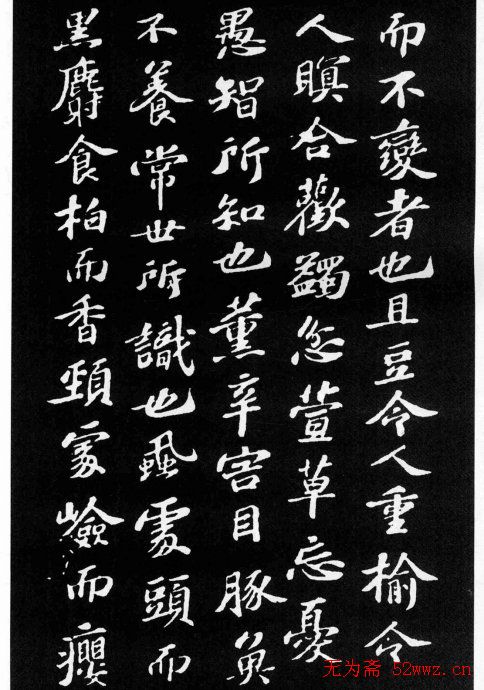 而不變者也且豆令人重榆令
人瞑合歡蠲忿萱草忘憂
愚智所知也薰辛害目豚魚
不養常世所識也虱處頭而
黑麝食柏而香頸處險而癭
无为斋 52wwz.cn